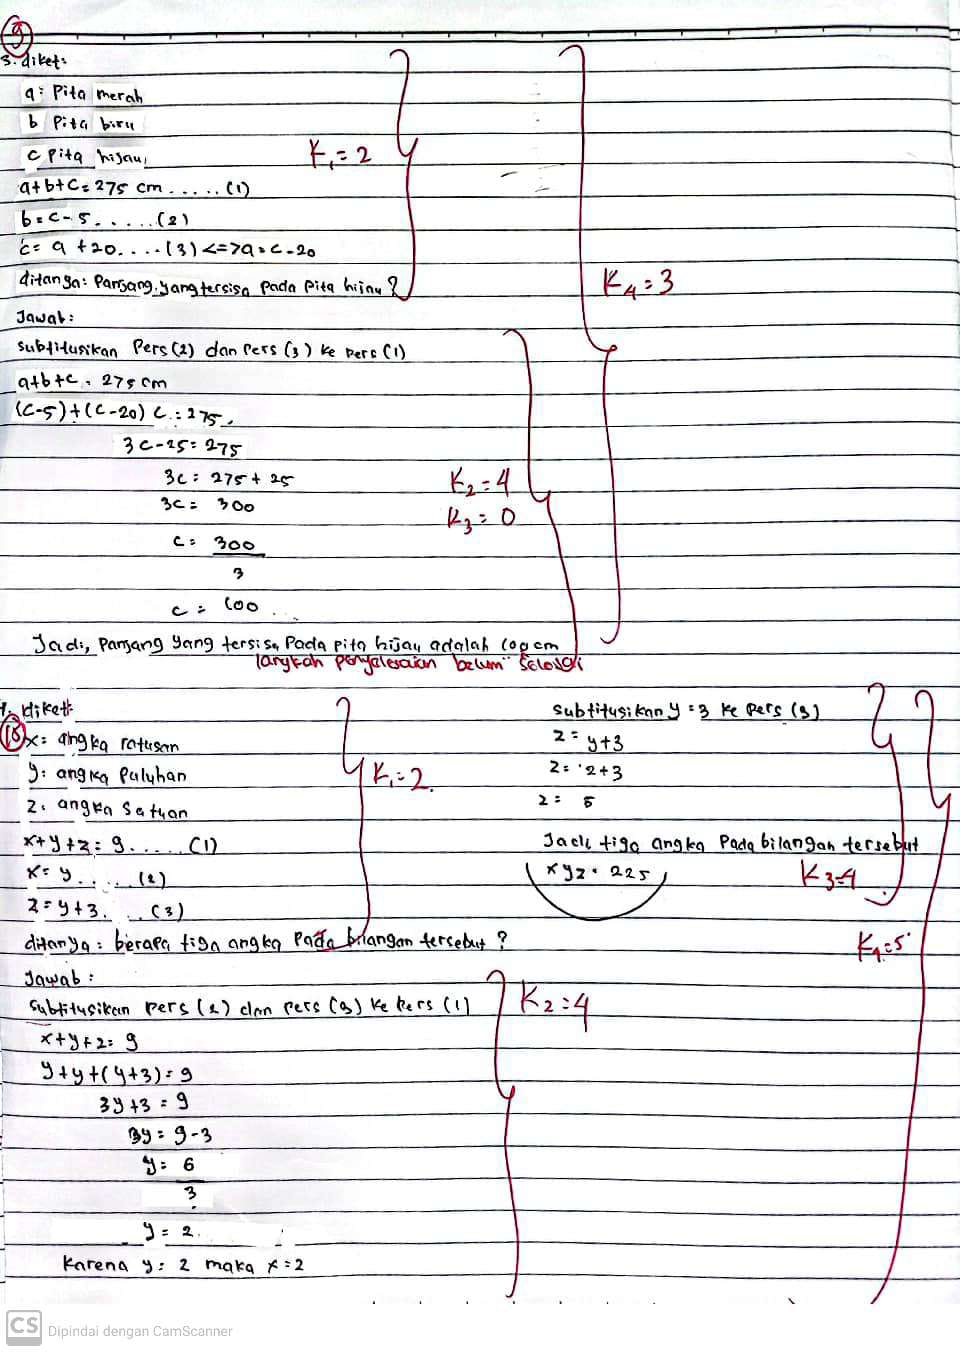 9
3. diket:
a: Pita merah
b Pita biru
c Pita hijau
K₁=2
a+b+c=275 cm ...... (1)
b=c-5...... (2)
c= a +20.... (3) <=> a=c-20
ditanya: Panjang yang tersisa pada Pita hijau?
K₄=3
Jawab:
subtitusikan Pers (2) dan Pers (3) ke pers (1)
a+b+c = 275 cm
(c-5)+(c-20) c = 275
3c-25=275
3c = 275+25
3c = 300
K₂=4
K₃=0
c = 300
3
c = 100
Jadi, Panjang yang tersisa Pada pita hijau adalah 100 cm
langkah penyelesaian belum selesai
diket
10
x= angka ratusan
y: angka Puluhan
z: angka satuan
K₁=2.
x+y+z=9..... (1)
x=y..... (2)
z=y+3.... (3)
ditanya: berapa tiga angka Pada bilangan tersebut ?
Jawab :
Subtitusikan pers (2) dan pers (3) ke Pers (1)
x+y+z= 9
y+y+(y+3)=9
3y+3 = 9
3y = 9-3
y= 6
3
y= 2.
Karena y= 2 maka x=2
K₂=4
subtitusikan y =3 ke pers (3)
z= y+3
z= 2+3
z= 5
Jadi tiga angka Pada bilangan tersebut
xyz = 225
K₃=4
K₄=5
CS Dipindai dengan CamScanner